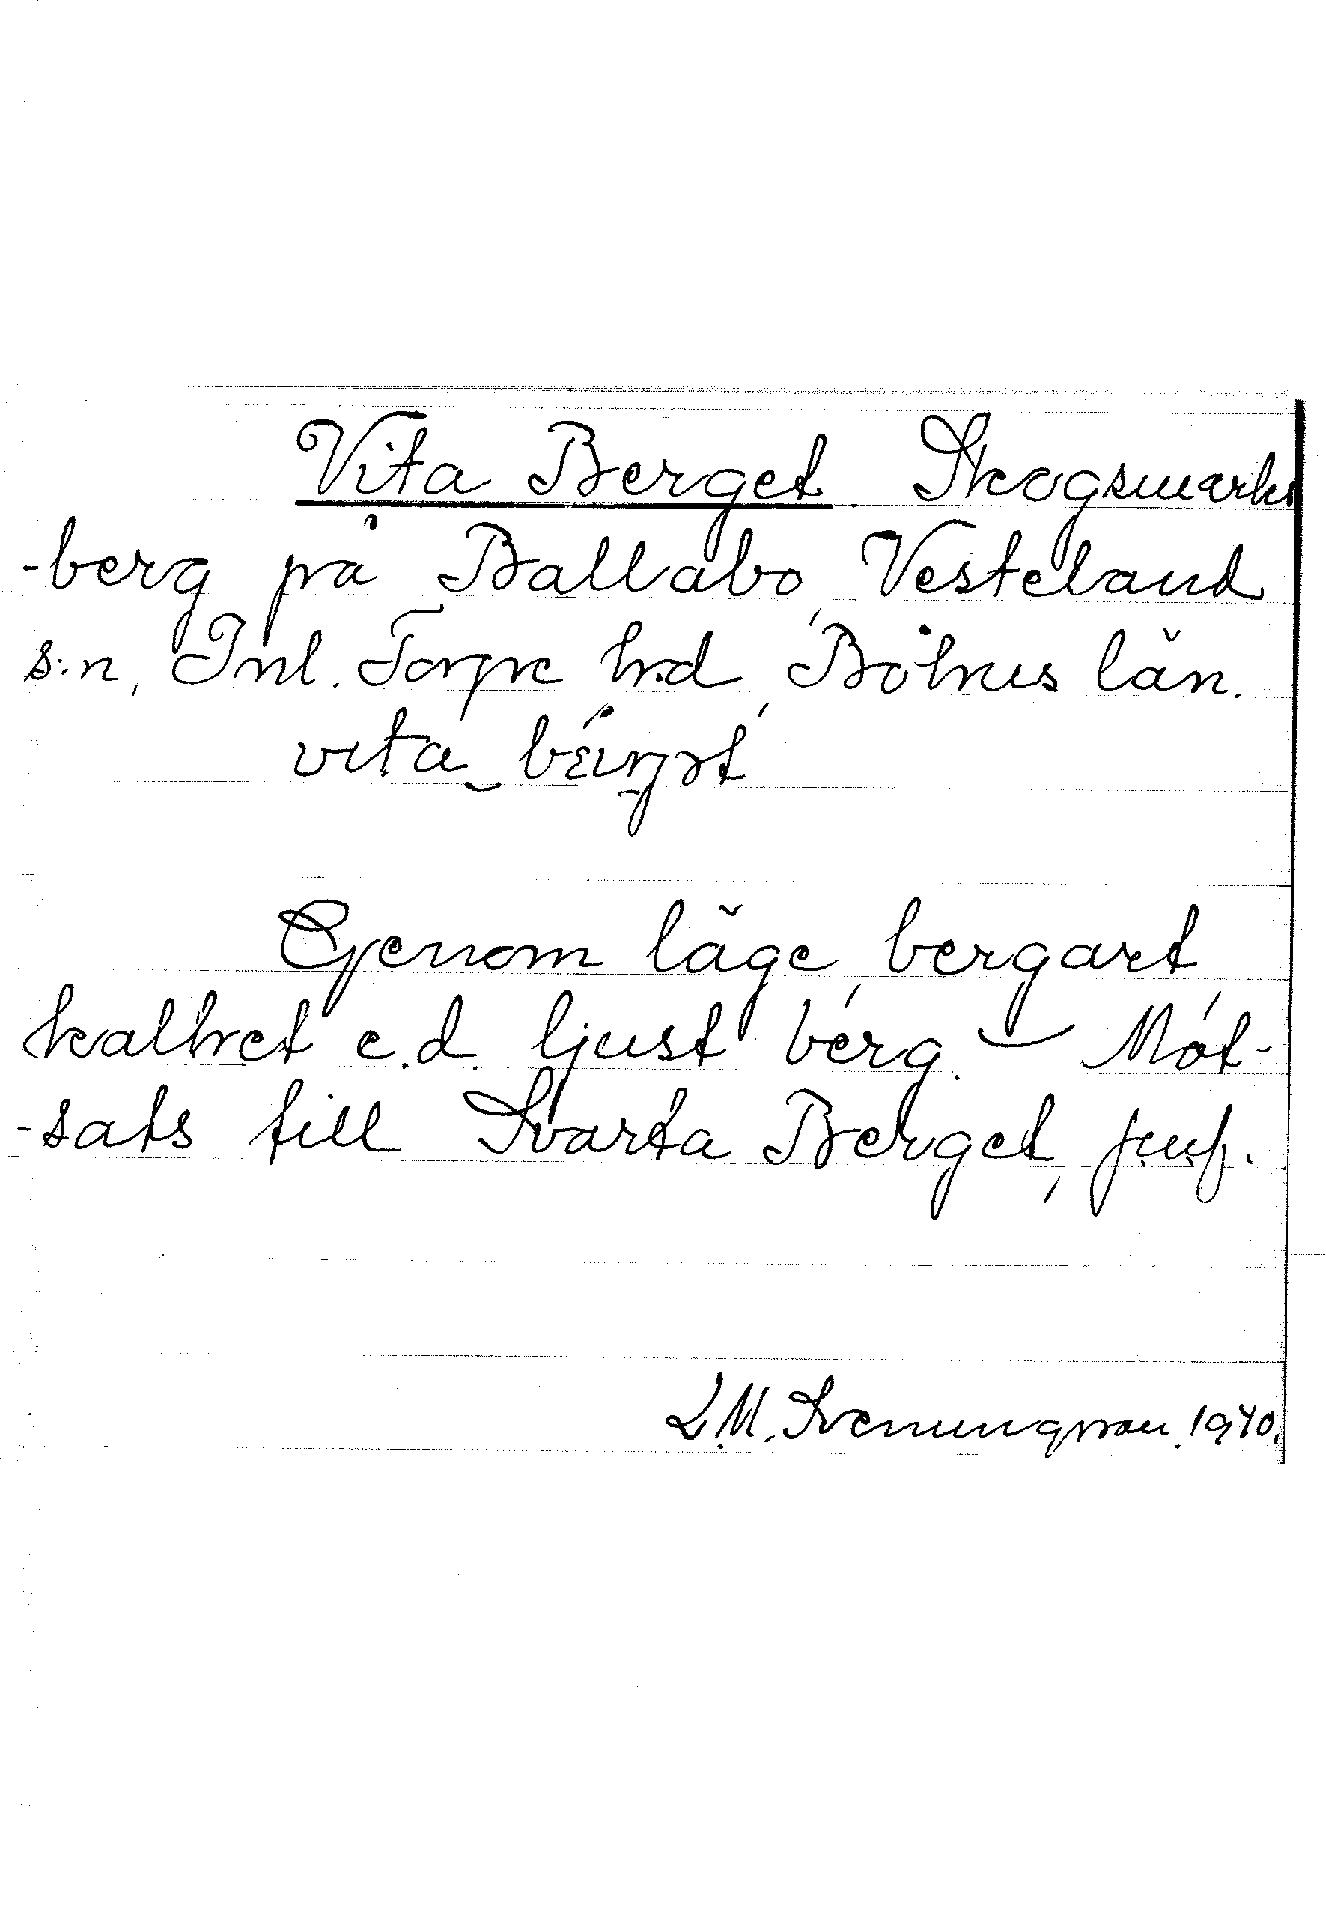 Vita Berget Skogsmarks
-berg på Ballabo, Vesteland
s:n, Inl. Torpe hrd, Bohus län.
vita
Genom läge, bergart,
kalhet e.d. ljust berg. – Mot-
-sats till Svarta Berget, jmf.
L.M. Svenungsson. 1940.